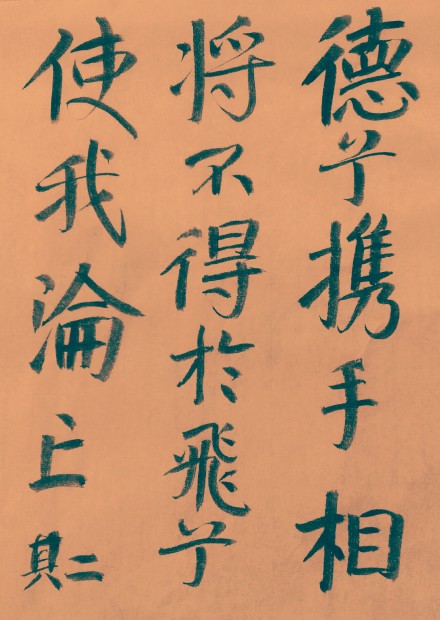 德兮携手相
将不得於飛兮
使我淪亡 其二